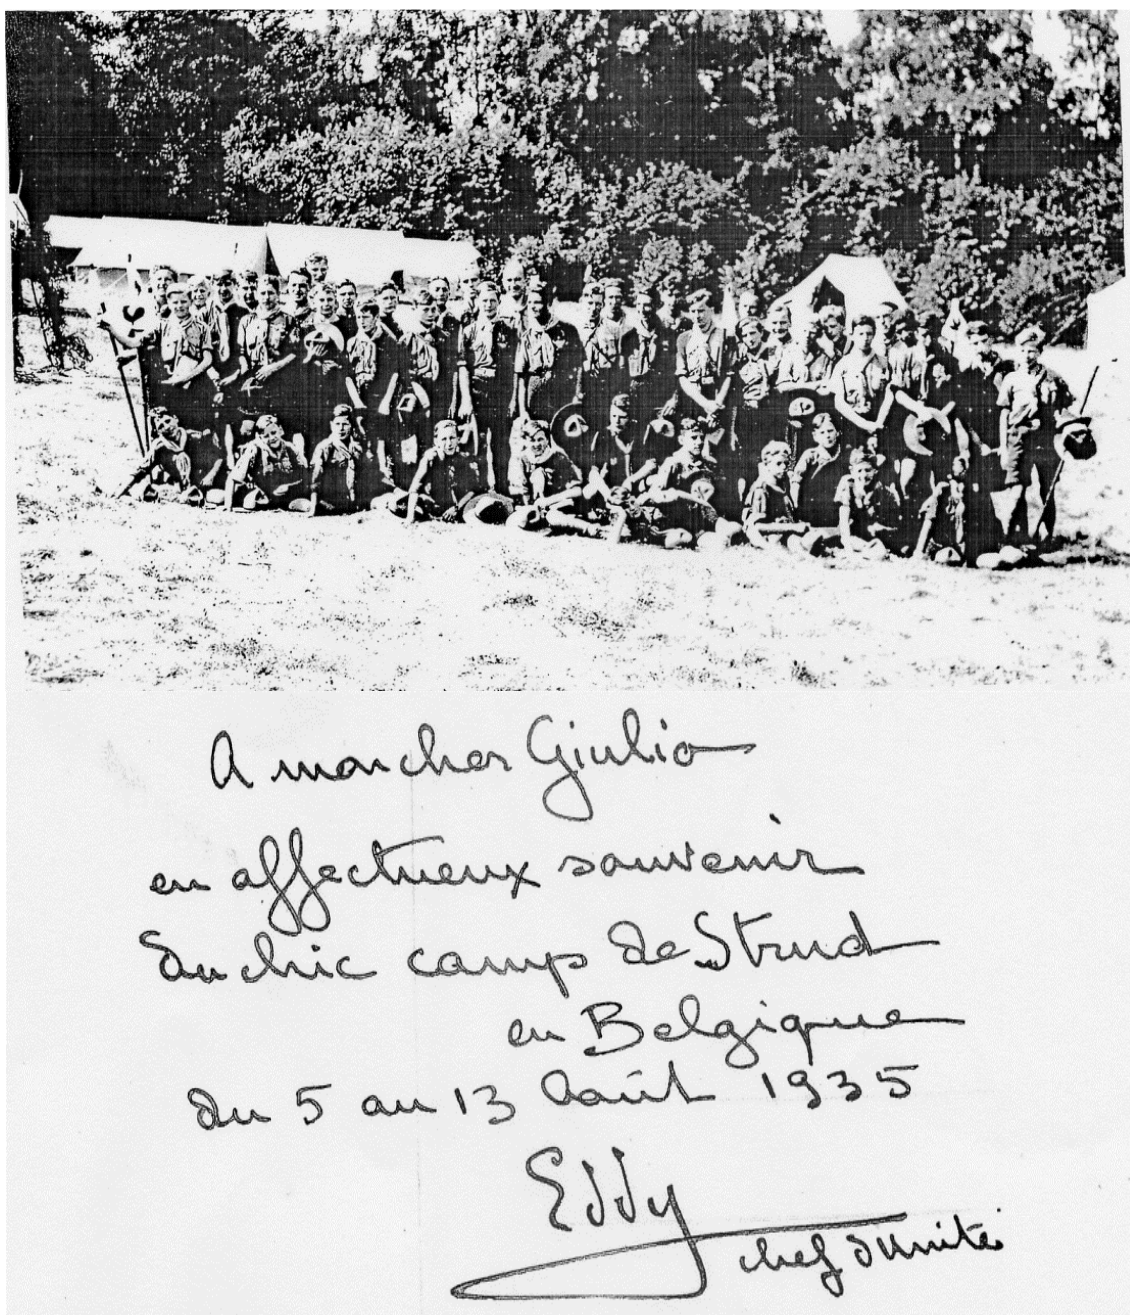 A mon cher Giulio
en affectueux souvenir
du chic camp de Strud
en Belgique
du 5 au 13 Août 1935
Eddy
chef d'Unité